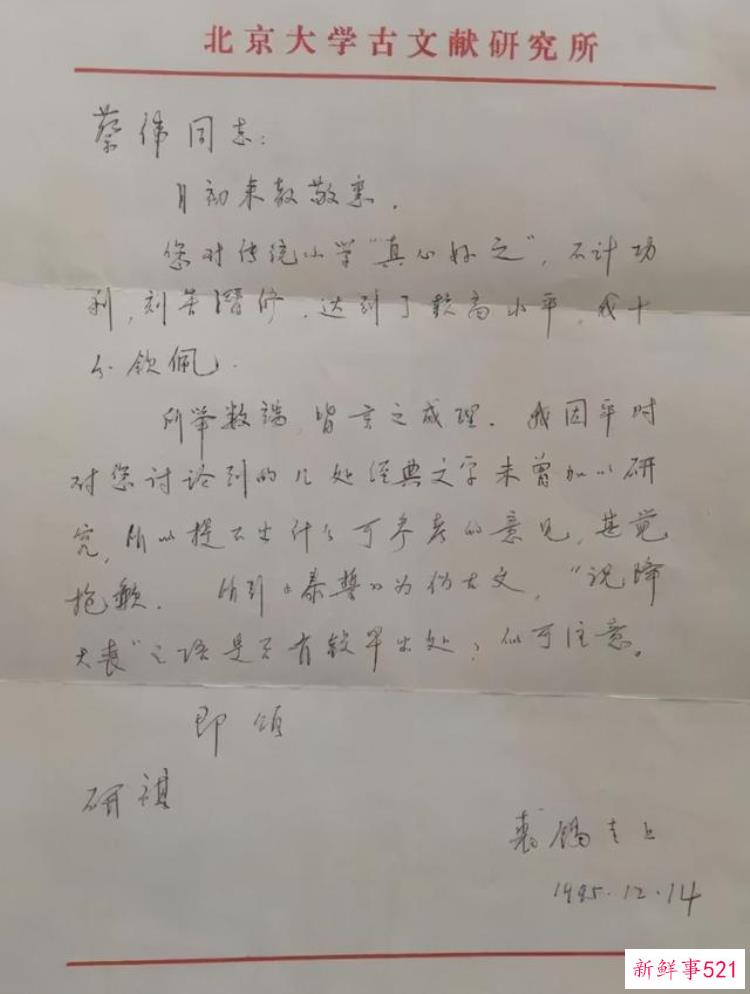 北京大学古文献研究所
蔡伟同志：
月初来教敬悉．
您对传统小学“真心好之”，不计功
利，刻苦潜修，达到了较高水平，我十
分钦佩．
所举数端，皆言之成理．我因平时
对您讨论到的几处经典文字未曾加以研
究，所以提不出什么可参考的意见，甚觉
抱歉．所引《泰誓》为伪古文，“祝降
大丧”之语是否有较早出处，似可注意。
即颂
研祺
裘锡圭上
1995.12.14
新鲜事521